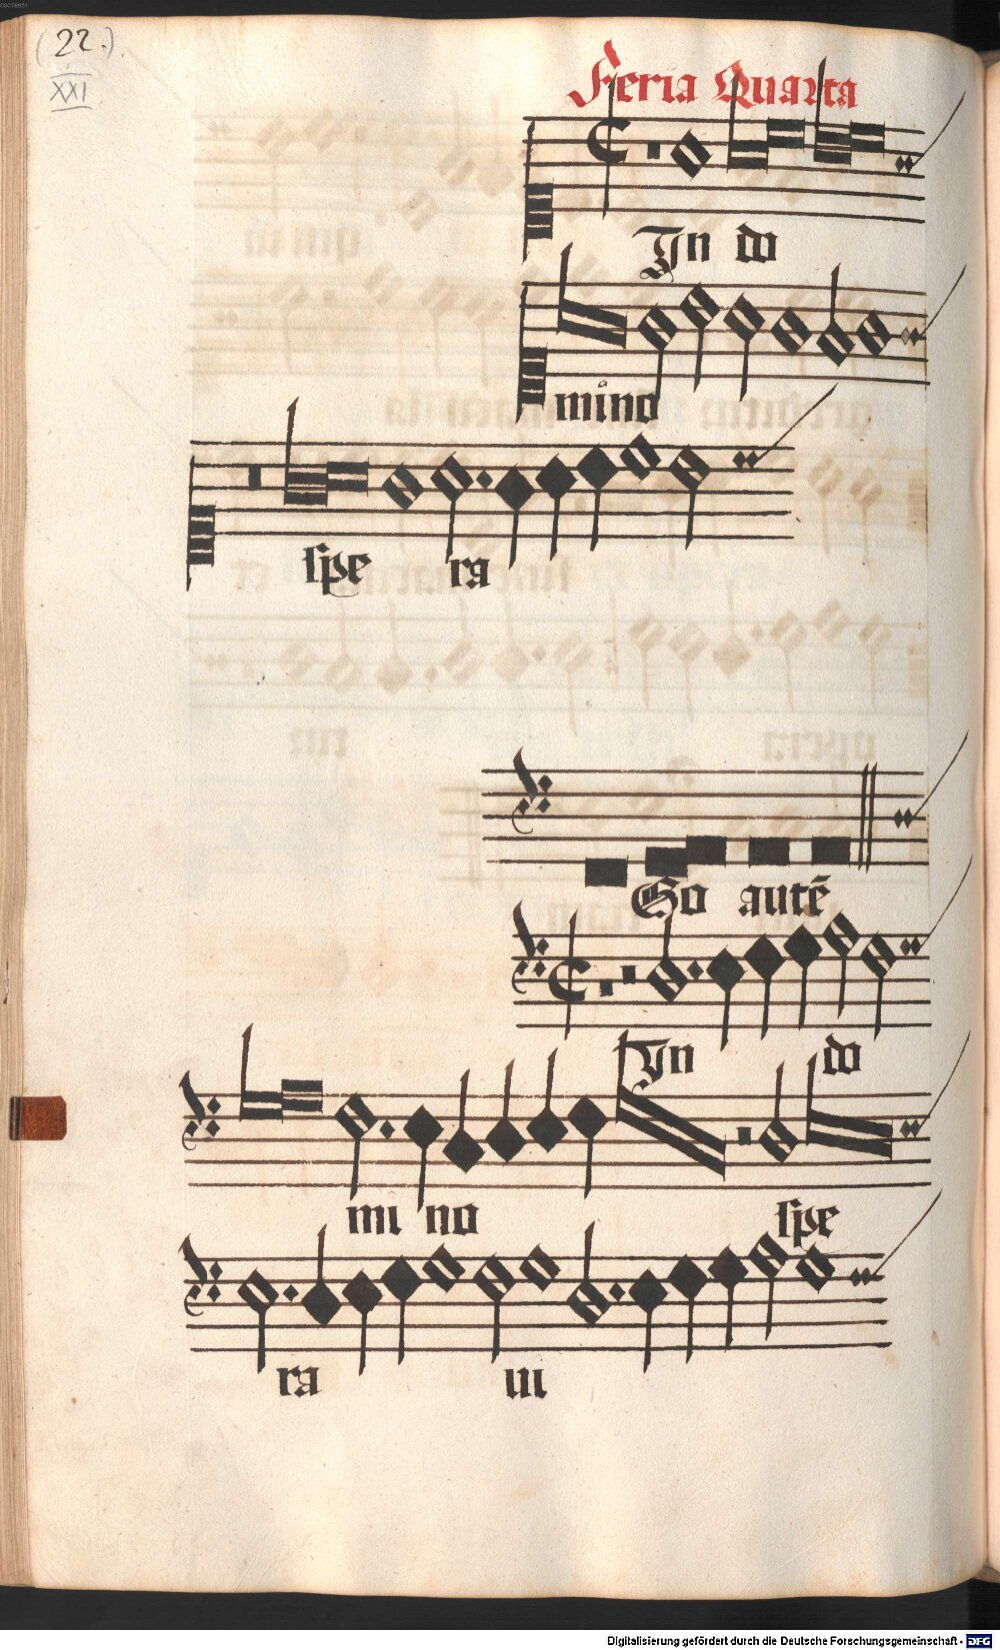 00078951
(22.)
XXI
Feria Quarta
In do
mino
spe ra
Go autē
In do
mi no spe
ra ui
Digitalisierung gefördert durch die Deutsche Forschungsgemeinschaft - DFG